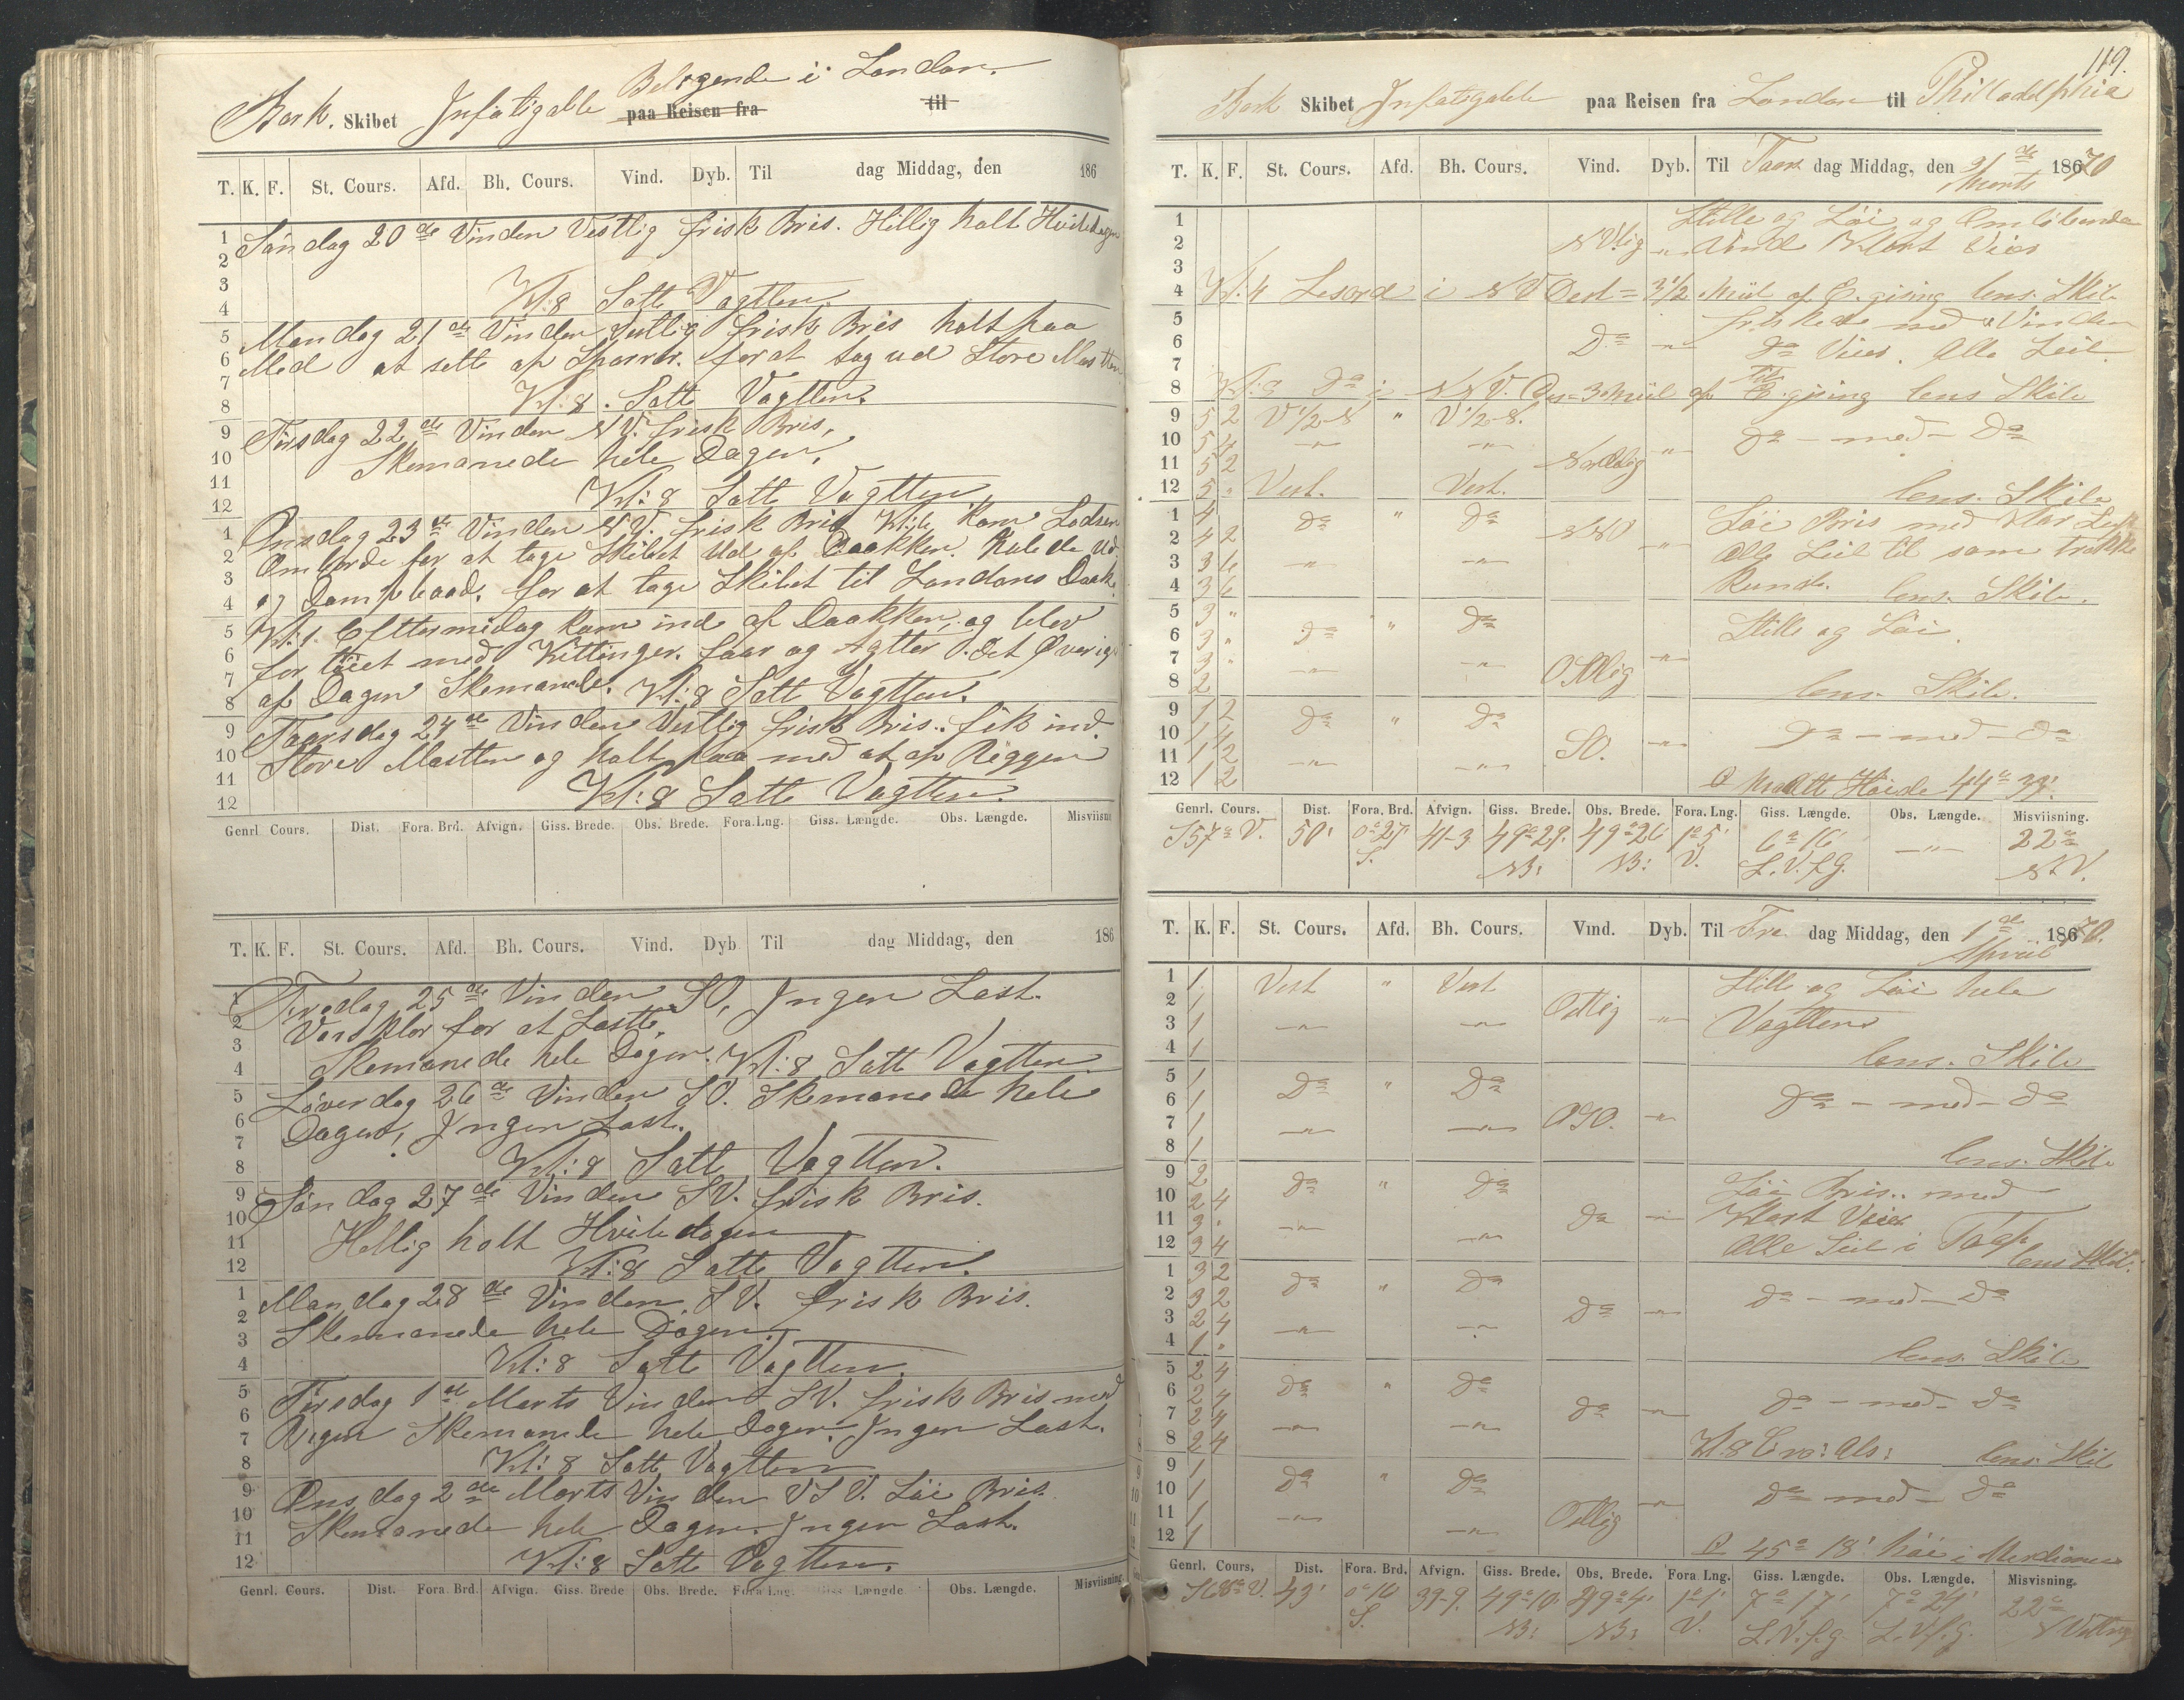 Beliggende i London.
Bark. Skibet Infatigable paa Reisen fra til
T. K. F. St. Cours. Afd. Bh. Cours. Vind. Dyb. Til dag Middag, den 186
Søndag 20de Vinden Vestlig frisk Bris. Hellig holt Hviledagen
Kl: 8 Satte Vagtten.
Mandag 21de Vinden Vestlig frisk Bris holt paa
Med at sette op Sparrer. for at tag ud Store Masten
Kl: 8. Satte Vagtten.
Tirsdag 22de Vinden NV. frisk Bris,
Skemanede hele Dagen.
Kl: 8 Satte Vagtten
Onsdag 23de Vinden NV. frisk Bris Kl: 6 kom Lodsen
Omborde for at tage Skibet Ud af Dokken. Halede Ud
og Dampbaad, for at tage Skibet til Londons Dock.
Kl: 1. Efttermidag kom ind af Dokken, og blev
for tøiet med Kettinger. foor og Agtter. Det Øverige
af Dagen Skemanede. Kl: 8 Satte Vagtten.
Taarsdag 24de Vinden Vestlig frisk Bris. fik ind.
Store Mastten og holt paa med at op Riggen
Kl: 8 Satte Vagtten.
Genrl Cours. Dist. Fora. Brd. Afvign. Giss. Brede. Obs. Brede. Fora. Lng. Giss. Længde. Obs. Længde. Misviisning
T. K. F. St. Cours. Afd. Bh. Cours. Vind. Dyb Til dag Middag, den 186
Fredag 25de Vinden SO, Ingen Last.
Vard klor for at Laste,
Skemanede hele Dagen. Kl: 8 Satte Vagtten.
Løverdag 26de Vinden SO. Skemanede hele
Dagen, Ingen Last.
Kl: 8 Satte Vagtten.
Søndag 27de Vinden SV. frisk Bris.
Hellig holt Hviledagen
Kl: 8 Satte Vagtten.
Mandag 28de Vinden SV. frisk Bris.
Skemanede hele Dagen.
Kl: 8 Satte Vagtten.
Tirsdag 1st Marts Vinden SV. frisk Bris med
Regen Skemanede hele Dagen. Ingen Last.
Kl: 8 Satte Vagtten
Onsdag 2de Marts Vinden VSV. Løi Bris.
Skemanede hele Dagen. Ingen Last.
Kl: 8 Satte Vagtten.
Genrl. Cours. Dist. Fora. Brd. Afvign. Giss. Brede Obs. Brede. Fora Lng. Giss Længde Obs. Længde. Misviisning
119.
Bark Skibet Infatigable paa Reisen fra London til Philladelphia
T. K. F. St. Cours. Afd. Bh. Cours. Vind. Dyb. Til Taars dag Middag, den 31de Marts 1870
1 Stille og Løi og Omløbende
2 NVlig " Vind Klart Veier
3
4 Kl. 4 i NV Dest = 3 1/2 Miil af gising lens. Skib
5 friskede med Vinden
6 Do " Do Veier. Alle Seil.
7
8 Do i NNV. 3 Miil af gising lens Skib
9 5 2 V 1/2 S " V 1/2 S. Do - med - Do
10 5 4 " "
11 5 2 Nordlig "
12 5 " Vest. Vest. lens. Skib
1 4 Do " Do NNO Løi Bris med Klar Luft
2 4 2 " Alle Seil til som trække
3 3 6 " " Kunde.
4 3 6 lens. Skib.
5 3 " Stille og Løi.
6 3 " Do " Do
7 3 " " " Ostlig "
8 2 lens. Skib.
9 1 2 Do " Do
10 1 4 SO. " Do - med - Do
11 1 2 " "
12 1 2 Høide 44° 39'.
Genrl. Cours. Dist. Fora. Brd. Afvign. Giss. Brede. Obs. Brede. Fora. Lng. Giss. Længde. Obs. Længde. Misviisning.
S 57° V. 50' 0° 27' 41-3 49° 29' 49° 26 1° 5' 6° 16' " 22°
S. NB: NB: V. L.V.f.G. NV.
T. K. F. St. Cours. Afd. Bh. Cours. Vind. Dyb. Til Fre dag Middag, den 1ste April 1870.
1 1 Vest " Vest Stille og Løi hele
2 1 Ostlig " Vagtten
3 1 " "
4 1 lens. Skib
5 1 Do " Do
6 1 Do - med - Do
7 1 " " OSO. "
8 1 lens. Skib
9 2 Do " Do Løi Bris. med
10 2 4 Do " Klart Veier
11 3 " " " Alle Seil i
12 3 4 lens Skib.
1 3 2 Do " Do
2 3 2 Do " Do - med - Do
3 2 4 " "
4 1 " lens. Skib
5 2 4 Do " Do
6 2 4 Do " Do - med - Do
7 2 4 " "
8 2 4 Kl. 8 lens. Skib
9 1 Do " Do
10 1 Do med - Do
11 1 " " Ostlig "
12 1 45° 18' høi i Merdianen
Genrl. Cours. Dist. Fora. Brd. Afvign. Giss. Brede. Obs. Brede. Fora Lng. Giss. Længde. Obs. Længde. Misvisning.
S 68° V. 43' 0° 16 39-9. 49° 10' 49° 4' 1° 1' 7° 17' 7° 24' 22°
S. NB: NB: V. L.V.f.G. L.V.f.G.